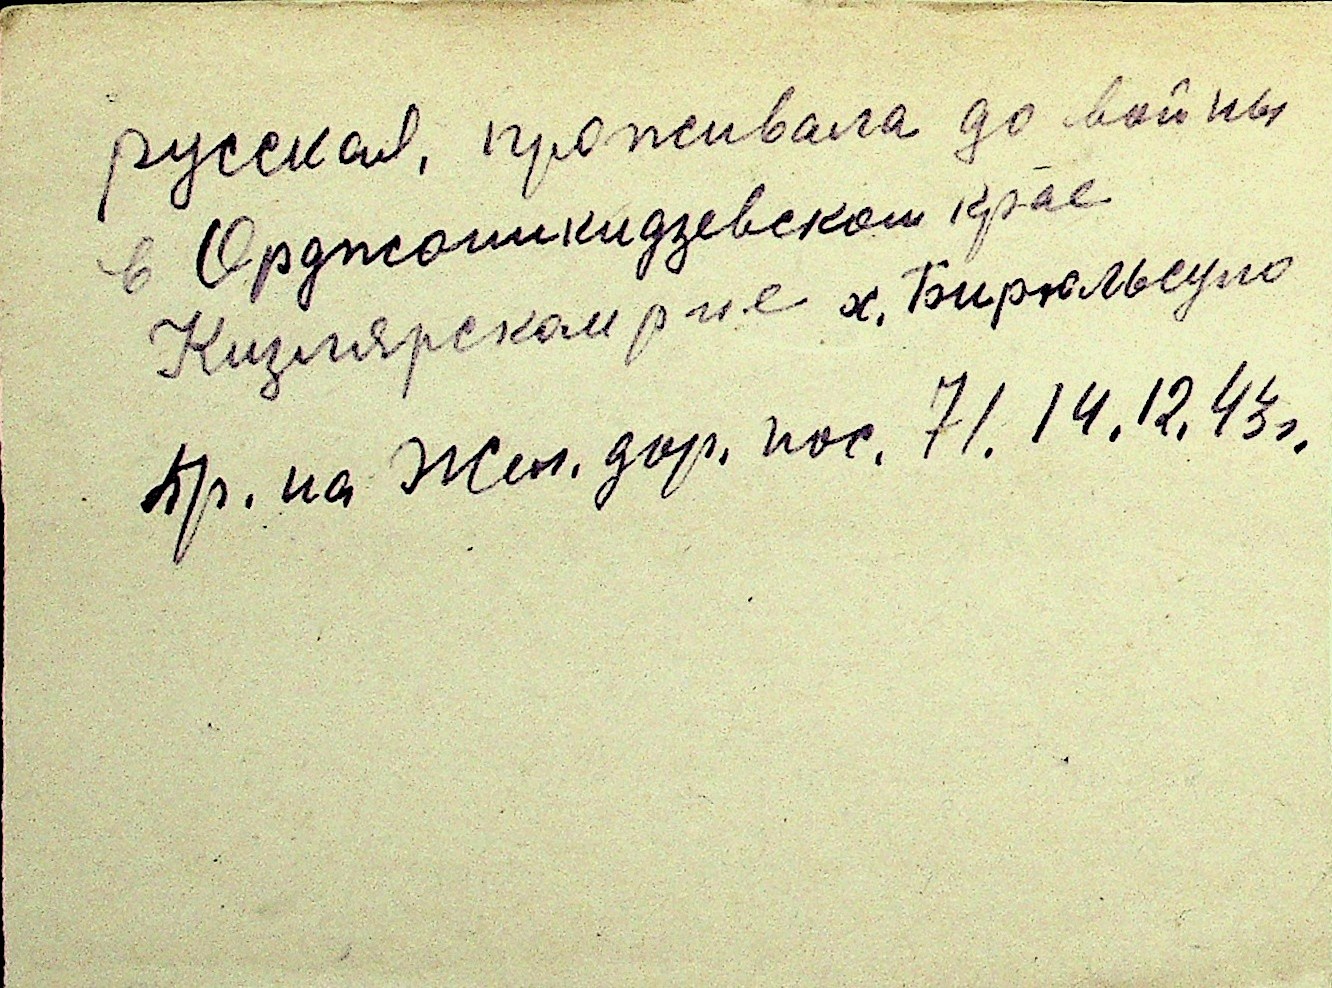 русская, проживала до войны
в Орджоникидзевском крае
Кизлярском р-не х. Бирюльсуло
Пр. на Жел. дор. пос. 71. 14.12.43г.